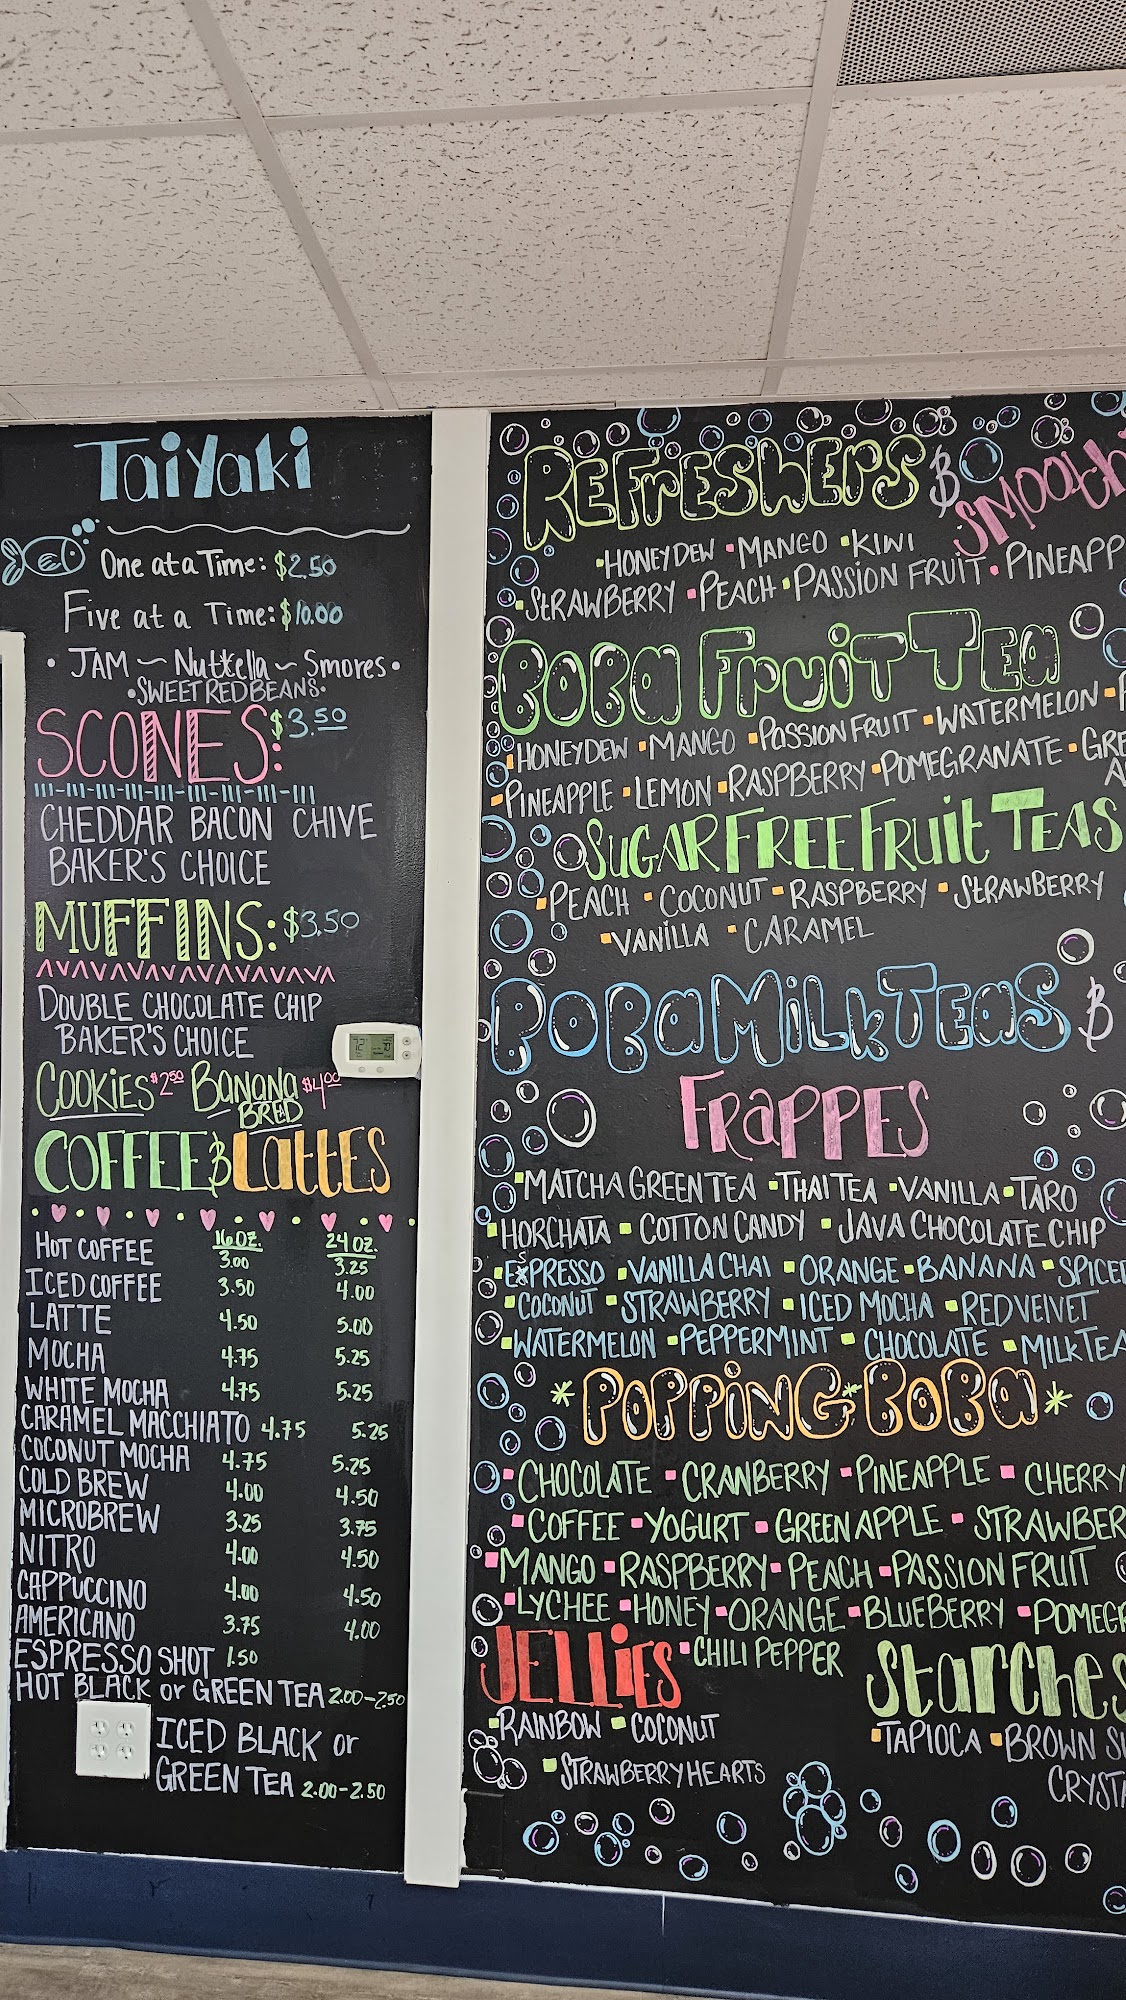 Taiyaki
One at a Time: $2.50
Five at a Time: $10.00
• JAM ~ Nutella ~ Smores •
•SWEET RED BEANS•
SCONES: $3.50
CHEDDAR BACON CHIVE
BAKER'S CHOICE
MUFFINS: $3.50
DOUBLE CHOCOLATE CHIP
BAKER'S CHOICE
COOKIES $2.50 BANANA BRED $4.00
COFFEE & LATTES
16 OZ. 24 OZ.
HOT COFFEE 3.00 3.25
ICED COFFEE 3.50 4.00
LATTE 4.50 5.00
MOCHA 4.75 5.25
WHITE MOCHA 4.75 5.25
CARAMEL MACCHIATO 4.75 5.25
COCONUT MOCHA 4.75 5.25
COLD BREW 4.00 4.50
MICROBREW 3.25 3.75
NITRO 4.00 4.50
CAPPUCCINO 4.00 4.50
AMERICANO 3.75 4.00
ESPRESSO SHOT 1.50
HOT BLACK or GREEN TEA 2.00-2.50
ICED BLACK or
GREEN TEA 2.00-2.50
REFRESHERS & SMOOTH
•HONEYDEW •MANGO •KIWI
•STRAWBERRY •PEACH •PASSION FRUIT •PINEAPP
BOBA FRUIT TEA
•HONEYDEW •MANGO •PASSION FRUIT •WATERMELON •
•PINEAPPLE •LEMON •RASPBERRY •POMEGRANATE •GRE
A
SUGAR FREE FRUIT TEAS
•PEACH •COCONUT •RASPBERRY •STRAWBERRY
•VANILLA •CARAMEL
BOBA MILK TEAS &
FRAPPES
•MATCHA GREEN TEA •THAI TEA •VANILLA •TARO
•HORCHATA •COTTON CANDY •JAVA CHOCOLATE CHIP
•ESPRESSO •VANILLA CHAI •ORANGE •BANANA •SPICED
•COCONUT •STRAWBERRY •ICED MOCHA •RED VELVET
•WATERMELON •PEPPERMINT •CHOCOLATE •MILK TEA
*POPPING BOBA*
•CHOCOLATE •CRANBERRY •PINEAPPLE •CHERRY
•COFFEE •YOGURT •GREEN APPLE •STRAWBER
•MANGO •RASPBERRY •PEACH •PASSION FRUIT
•LYCHEE •HONEY •ORANGE •BLUEBERRY •POMEGR
•CHILI PEPPER
JELLIES
•RAINBOW •COCONUT
•STRAWBERRY HEARTS
Starches
•TAPIOCA •BROWN SU
CRYSTA